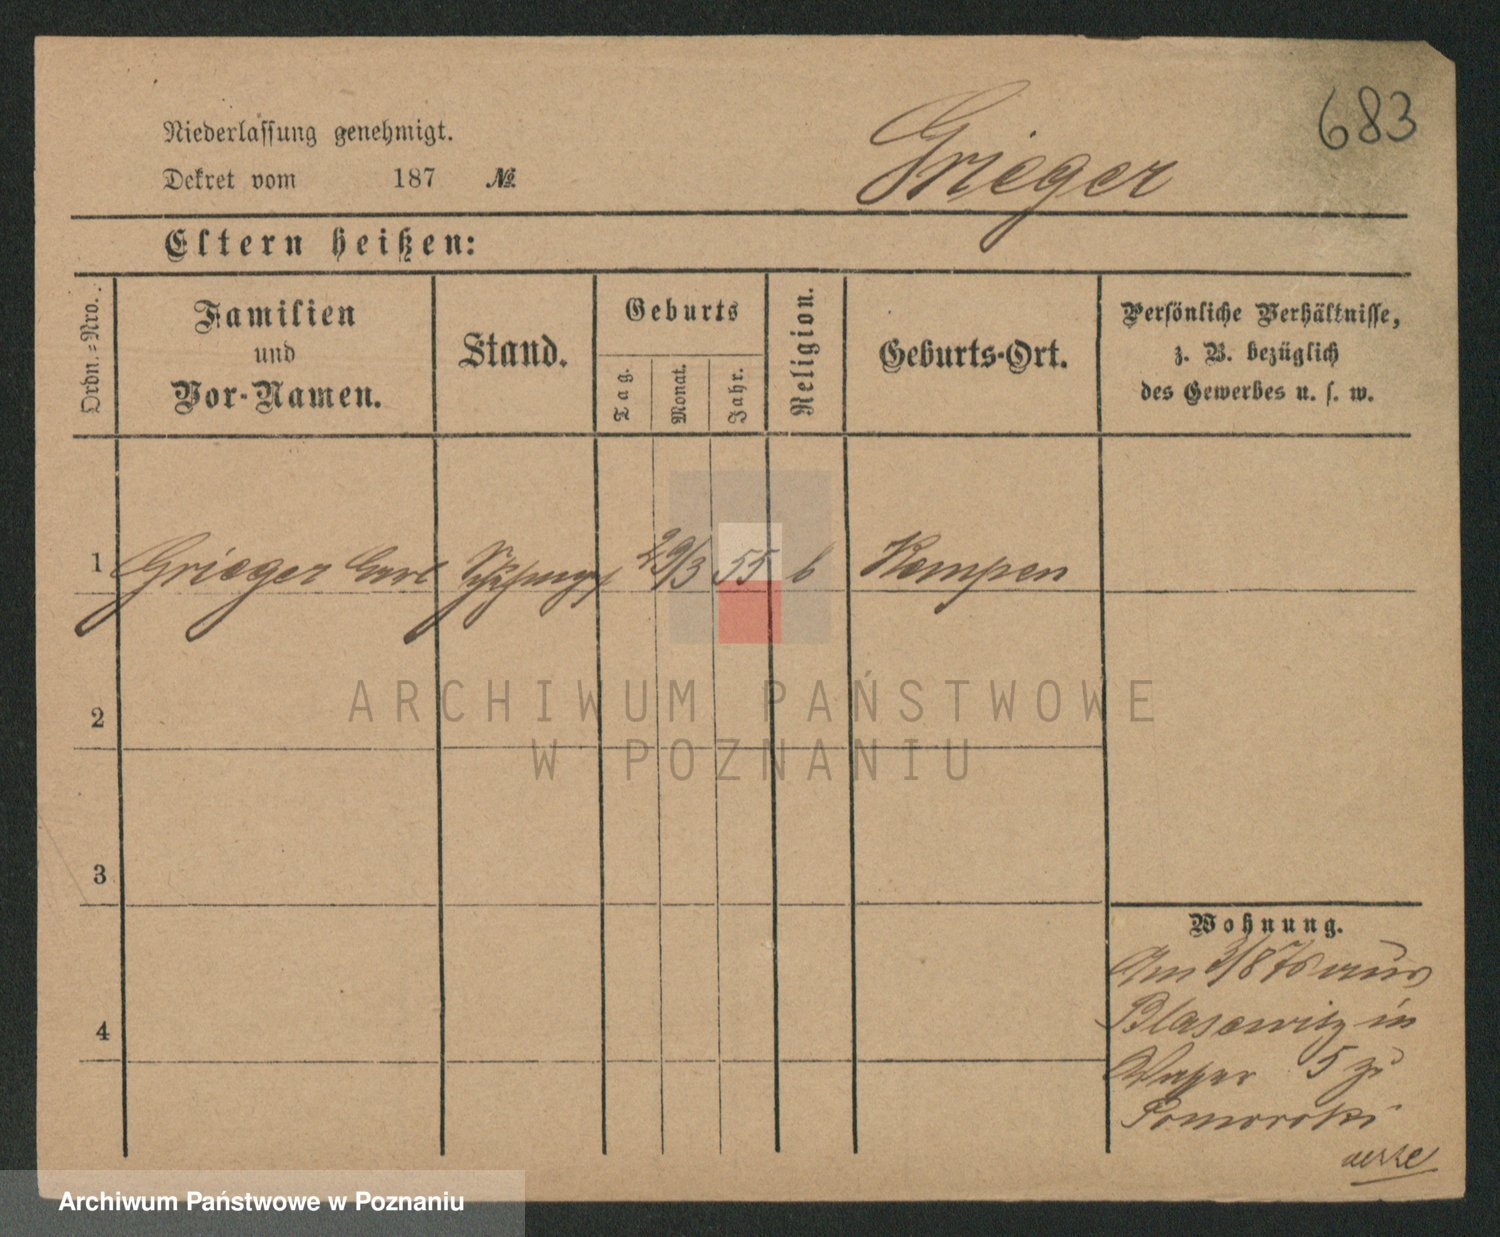 683
Niederlassung genehmigt.
Dekret vom 187 №
Grieger
Eltern heißen:
Ordn.-Nro.
Familien
und
Vor-Namen.
Stand.
Geburts
Tag.
Monat.
Jahr.
Religion.
Geburts-Ort.
Persönliche Verhältnisse,
z. B. bezüglich
des Gewerbes u. s. w.
1 Grieger Carl 29/3 55 Kempen
ARCHIWUM PAŃSTWOWE
W POZNANIU
2
3
4
Wohnung.
Am 3/8 76 aus
Blasewitz in
5 zu
Pomorski
Archiwum Państwowe w Poznaniu